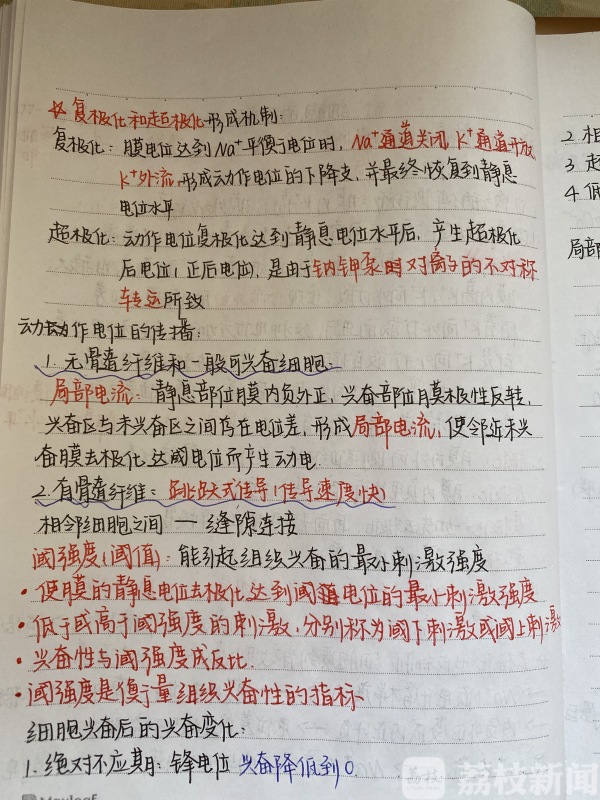 ☆复极化和超极化形成机制:
复极化: 膜电位达到Na⁺平衡电位时, Na⁺通道关闭, K⁺通道开放,
K⁺外流, 形成动作电位的下降支, 并最终恢复到静息
电位水平
超极化: 动作电位复极化达到静息电位水平后, 产生超极化
后电位(正后电位), 是由于钠钾泵时对离子的不对称
转运所致
动作电位的传播:
1. 无髓鞘纤维和一般可兴奋细胞:
局部电流: 静息部位膜内负外正, 兴奋部位膜极性反转,
兴奋区与未兴奋区之间存在电位差, 形成局部电流, 使邻近未兴
奋膜去极化达阈电位而产生动电.
2. 有髓鞘纤维: 跳跃式传导(传导速度快)
相邻细胞之间 — 缝隙连接
阈强度(阈值): 能引起组织兴奋的最小刺激强度
• 使膜的静息电位去极化达到阈电位的最小刺激强度
• 低于或高于阈强度的刺激, 分别称为阈下刺激或阈上刺激
• 兴奋性与阈强度成反比.
• 阈强度是衡量组织兴奋性的指标
细胞兴奋后的兴奋变化:
1. 绝对不应期: 锋电位 兴奋降低到0.
2 相
3 超
4 低
局部
荔枝新闻